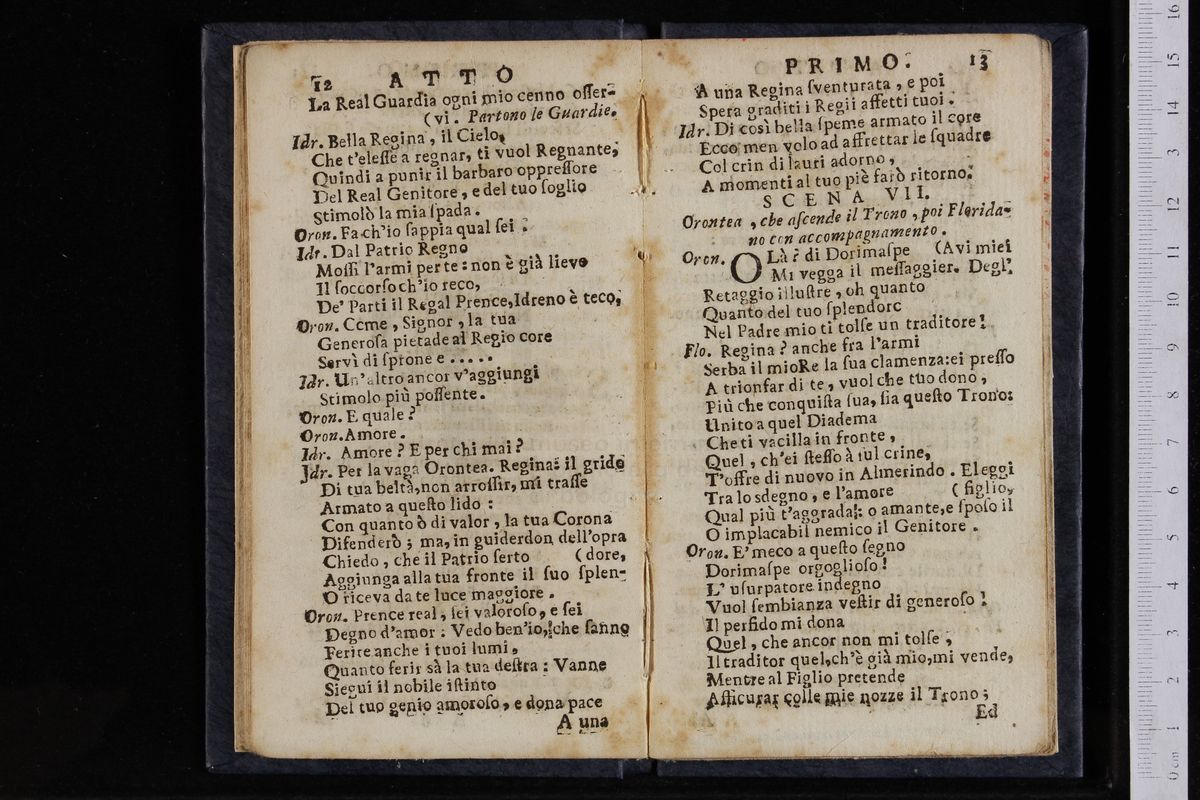 12 ATTO
La Real Guardia ogni mio cenno oſſer-
(vi. Partono le Guardie.
Idr. Bella Regina, il Cielo,
Che t'eleſſe a regnar, ti vuol Regnante,
Quindi a punir il barbaro oppreſſore
Del Real Genitore, e del tuo ſoglio
Stimolò la mia ſpada.
Oron. Fa ch'io ſappia qual ſei.
Idr. Dal Patrio Regno
Moſſi l'armi per te: non è già lieve
Il ſoccorſo ch'io reco,
De' Parti il Regal Prence, Idreno è teco,
Oron. Ccme, Signor, la tua
Generoſa pietade al Regio core
Servì di ſprone e .....
Idr. Un'altro ancor v'aggiungi
Stimolo più poſſente.
Oron. E quale?
Oron. Amore.
Idr. Amore? E per chi mai?
Idr. Per la vaga Orontea. Regina: il grido
Di tua beltà, non arroſſir, mi traſſe
Armato a queſto lido:
Con quanto ò di valor, la tua Corona
Difenderò; ma, in guiderdon dell'opra
Chiedo, che il Patrio ſerto (dore,
Aggiunga alla tua fronte il ſuo ſplen-
O riceva da te luce maggiore.
Oron. Prence real, ſei valoroſo, e ſei
Degno d'amor: Vedo ben'io, che ſanno
Ferire anche i tuoi lumi,
Quanto ferir sà la tua deſtra: Vanne
Siegui il nobile iſtinto
Del tuo genio amoroſo, e dona pace
A una
PRIMO. 13
A una Regina ſventurata, e poi
Spera graditi i Regii affetti tuoi.
Idr. Di così bella ſpeme armato il core
Ecco men volo ad affrettar le ſquadre
Col crin di lauri adorno,
A momenti al tuo piè farò ritorno.
SCENA VII.
Orontea, che aſcende il Trono, poi Florida-
no con accompagnamento.
Oron. OLà? di Dorimaſpe (Avi miei
Mi vegga il meſſaggier. Degl'
Retaggio illuſtre, oh quanto
Quanto del tuo ſplendore
Nel Padre mio ti tolſe un traditore!
Flo. Regina? anche fra l'armi
Serba il mio Re la ſua clamenza: ei preſſo
A trionfar di te, vuol che tuo dono,
Più che conquiſta ſua, ſia queſto Trono:
Unito a quel Diadema
Che ti vacilla in fronte,
Quel, ch'ei ſteſſo à ſul crine,
T'offre di nuovo in Almerindo. Eleggi
Tra lo sdegno, e l'amore (figlio,
Qual più t'aggrada: o amante, e ſpoſo il
O implacabil nemico il Genitore.
Oron. E' meco a queſto ſegno
Dorimaſpe orgoglioſo!
L' uſurpatore indegno
Vuol ſembianza veſtir di generoſo!
Il perfido mi dona
Quel, che ancor non mi tolſe,
Il traditor quel, ch'è già mio, mi vende,
Mentre al Figlio pretende
Aſſicurar colle mie nozze il Trono;
Ed
0 cm 1 2 3 4 5 6 7 8 9 10 11 12 13 14 15 16